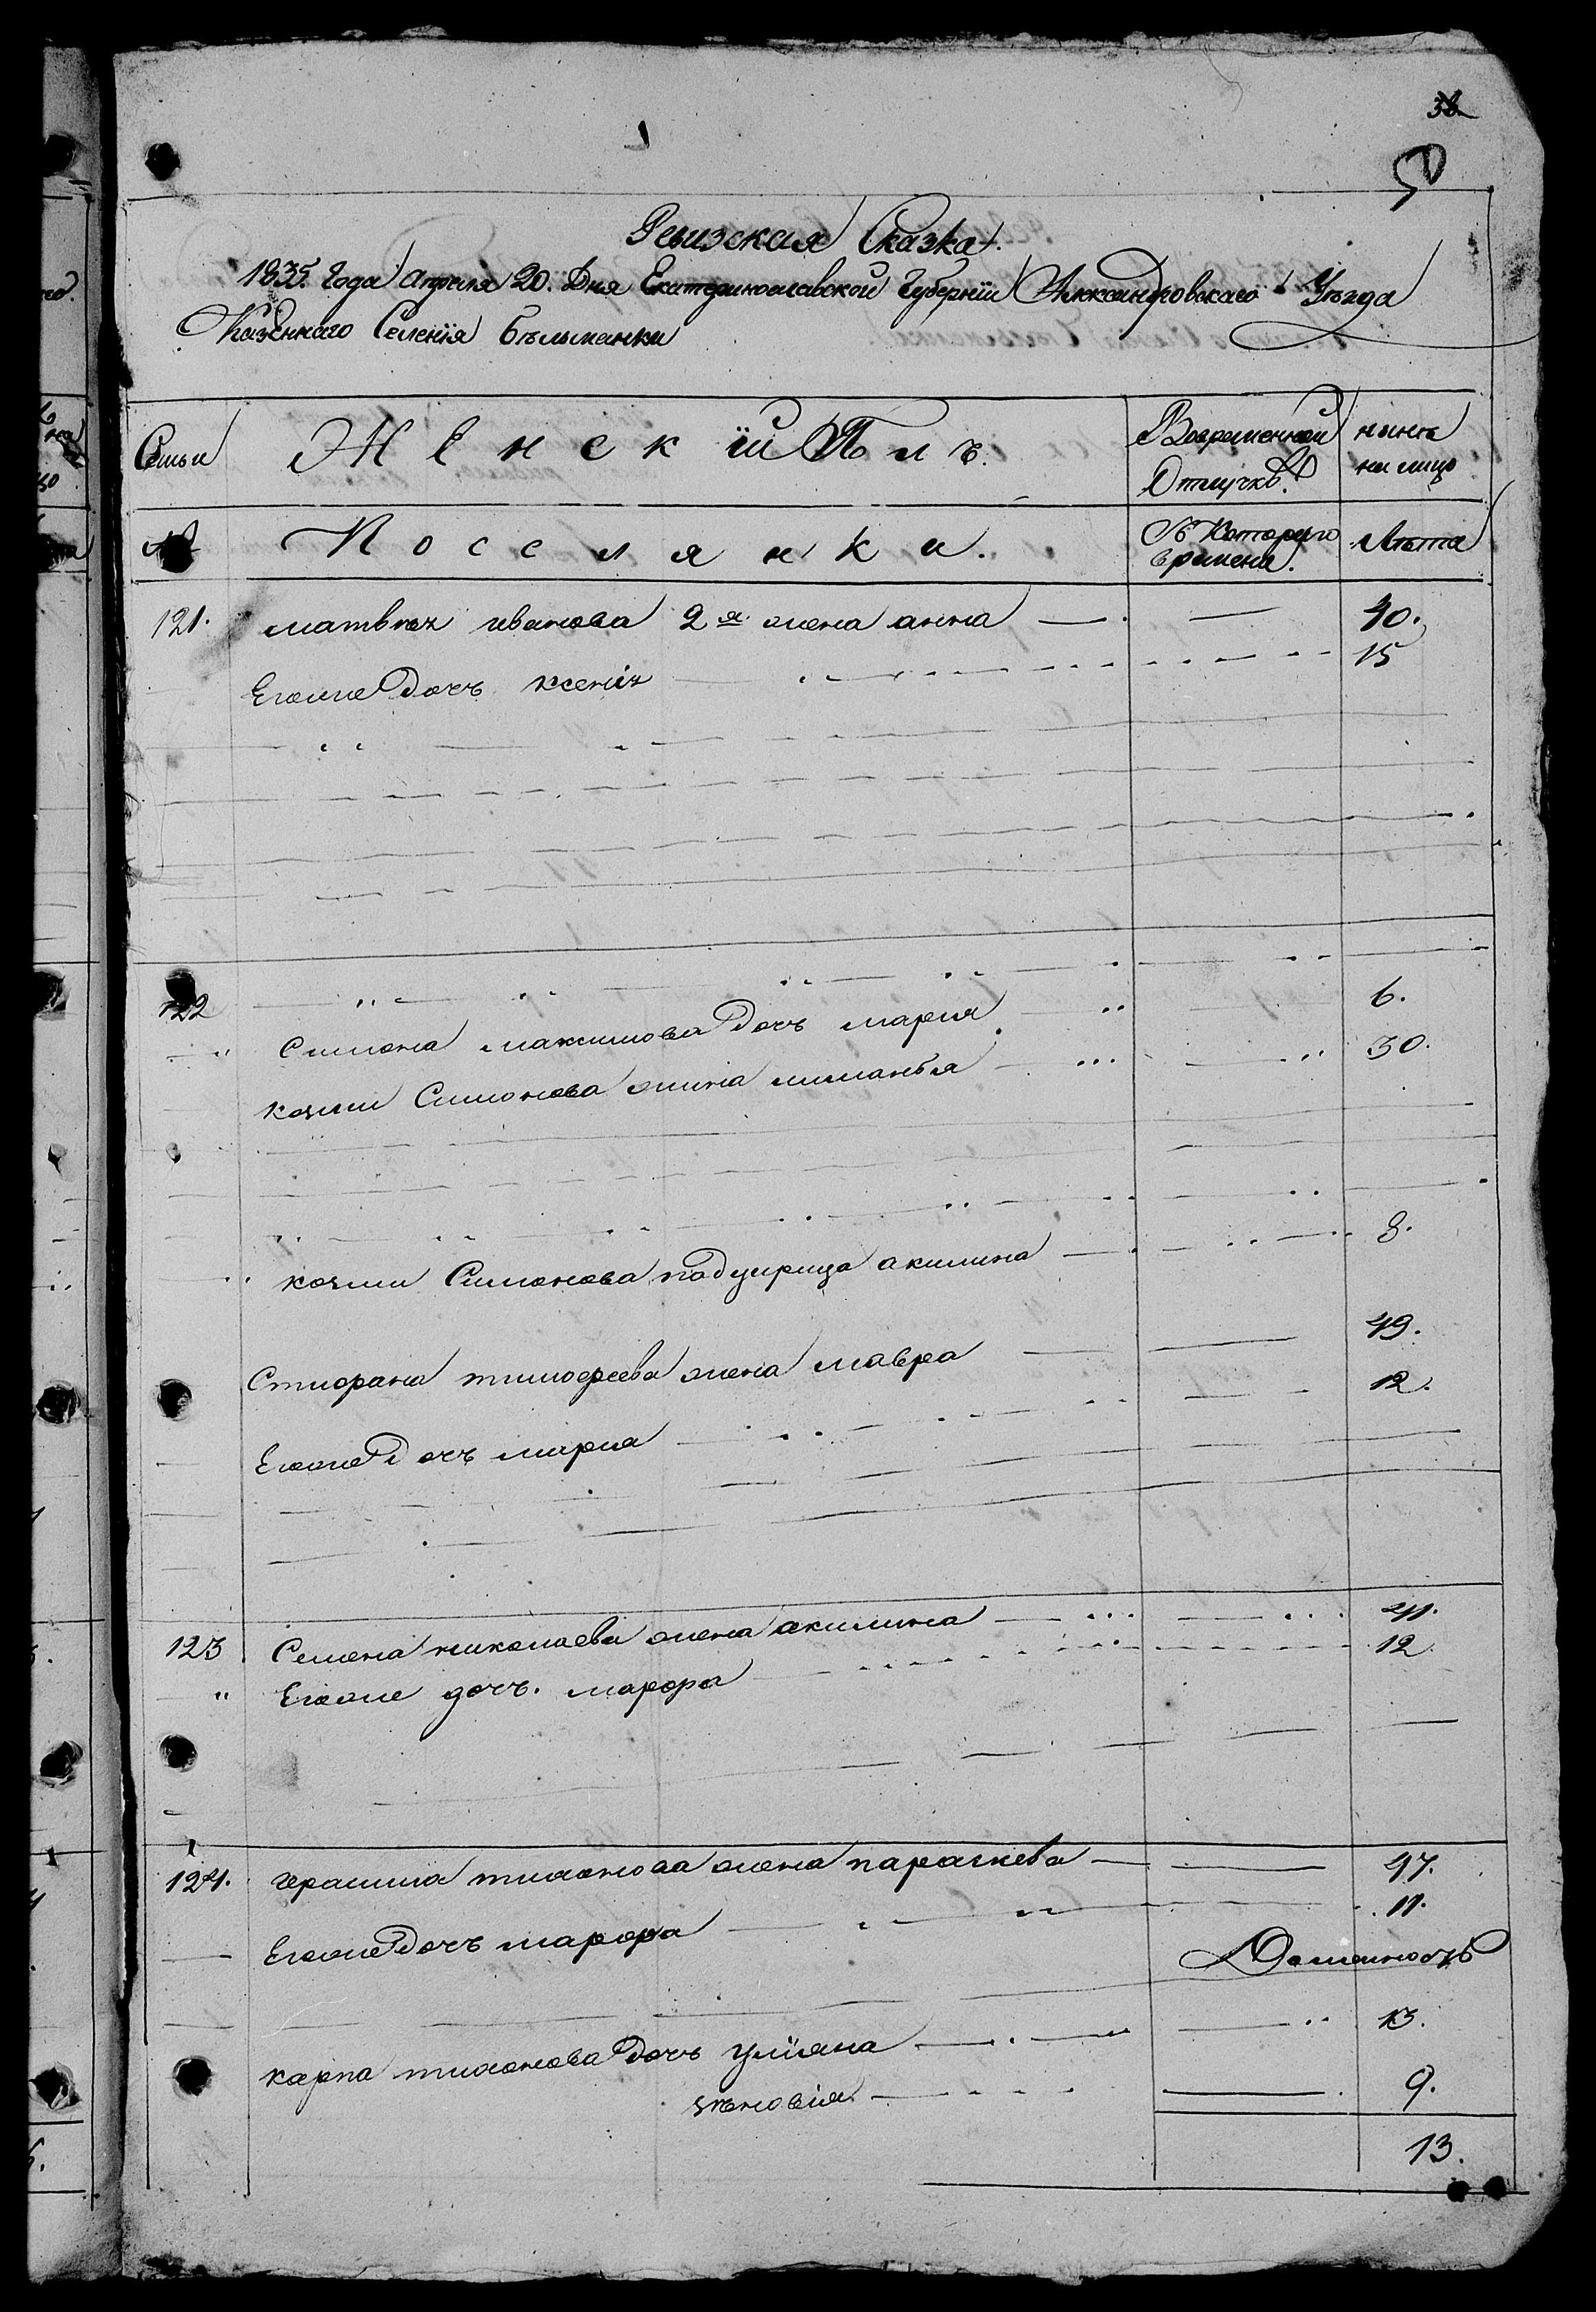 38
50
Ревизская Сказка.
1835. Года Апреля 20. Дня Екатеринославской Губернїи Александровскаго Уѣзда
Казеннаго Селенїя Бѣльманки
Семьи Женскїй Полъ. Вовременной Отлучкѣ. нынѣ на лицо
№ Поселянки. Съ Котораго времени. Лѣта
121. матвѣя иванова 2я жена анна 40.
Егоже дочь ксенія 15
122
" Симона максимова дочь мария 6.
козми Симонова жина 30.
" козми Симонова падчирица акилина 8.
Стифана тимофеева жена мавра 49.
Егоже дочь мариа 12.
123 Семена николаева жена акилина 41.
" Егоже дочь. марфа 12.
124. герасима тихонова жена параскева 47.
Егоже дочь марфа 11.
карпа тихонова дочь улїяна 13.
зѣновія 9.
13.